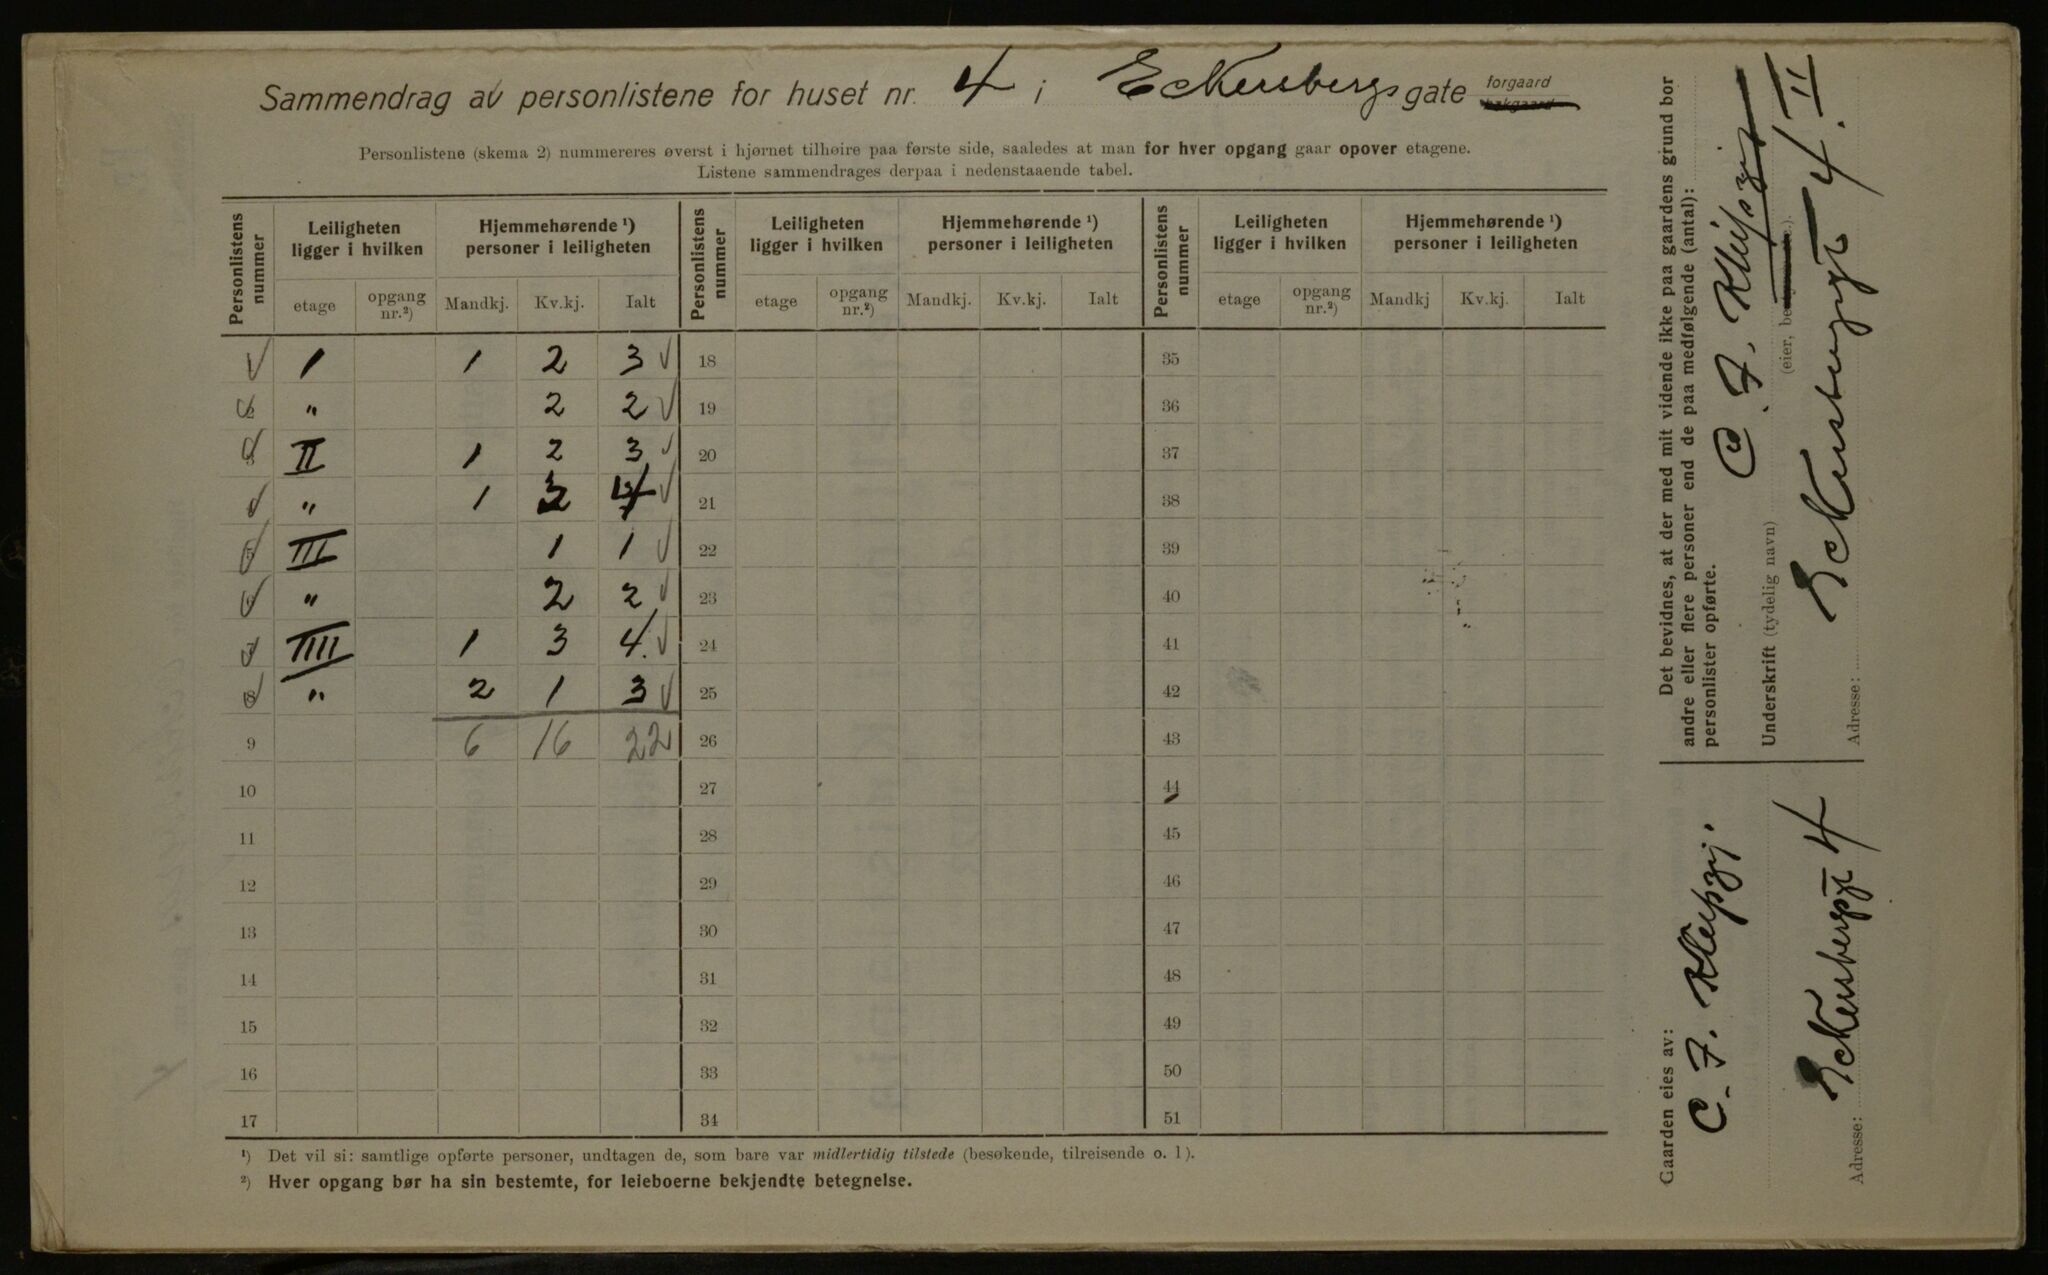 Sammendrag av personlistene for huset nr. 4 i Eckersbergs gate forgaard bakgaard
Personlistene (skema 2) nummereres øverst i hjørnet tilhøire paa første side, saaledes at man for hver opgang gaar opover etagene.
Listene sammendrages derpaa i nedenstaaende tabel.
Personlistens nummer | Leiligheten ligger i hvilken | Hjemmehørende ¹) personer i leiligheten | Personlistens nummer | Leiligheten ligger i hvilken | Hjemmehørende ¹) personer i leiligheten | Personlistens nummer | Leiligheten ligger i hvilken | Hjemmehørende ¹) personer i leiligheten
etage | opgang nr.²) | Mandkj. | Kv.kj. | Ialt | etage | opgang nr.²) | Mandkj. | Kv.kj. | Ialt | etage | opgang nr.²) | Mandkj | Kv.kj. | Ialt
1 | I | 1 | 2 | 3 | 18 | 35
2 | " | 2 | 2 | 19 | 36
3 | II | 1 | 2 | 3 | 20 | 37
4 | " | 1 | 3 | 4 | 21 | 38
5 | III | 1 | 1 | 22 | 39
6 | " | 2 | 2 | 23 | 40
7 | IIII | 1 | 3 | 4. | 24 | 41
8 | " | 2 | 1 | 3 | 25 | 42
9 | 6 | 16 | 22 | 26 | 43
10 | 27 | 44
11 | 28 | 45
12 | 29 | 46
13 | 30 | 47
14 | 31 | 48
15 | 32 | 49
16 | 33 | 50
17 | 34 | 51
¹) Det vil si: samtlige opførte personer, undtagen de, som bare var midlertidig tilstede (besøkende, tilreisende o. l).
²) Hver opgang bør ha sin bestemte, for leieboerne bekjendte betegnelse.
Det bevidnes, at der med mit vidende ikke paa gaardens grund bor
andre eller flere personer end de paa medfølgende (antal):
personlister opførte.
C. F. Klepzig
Underskrift (tydelig navn)
(eier, bestyrer etc.).
Eckersbergsgt 4. II
Adresse:
Gaarden eies av:
C. F. Klepzig.
Eckersbergsgt 4
Adresse: